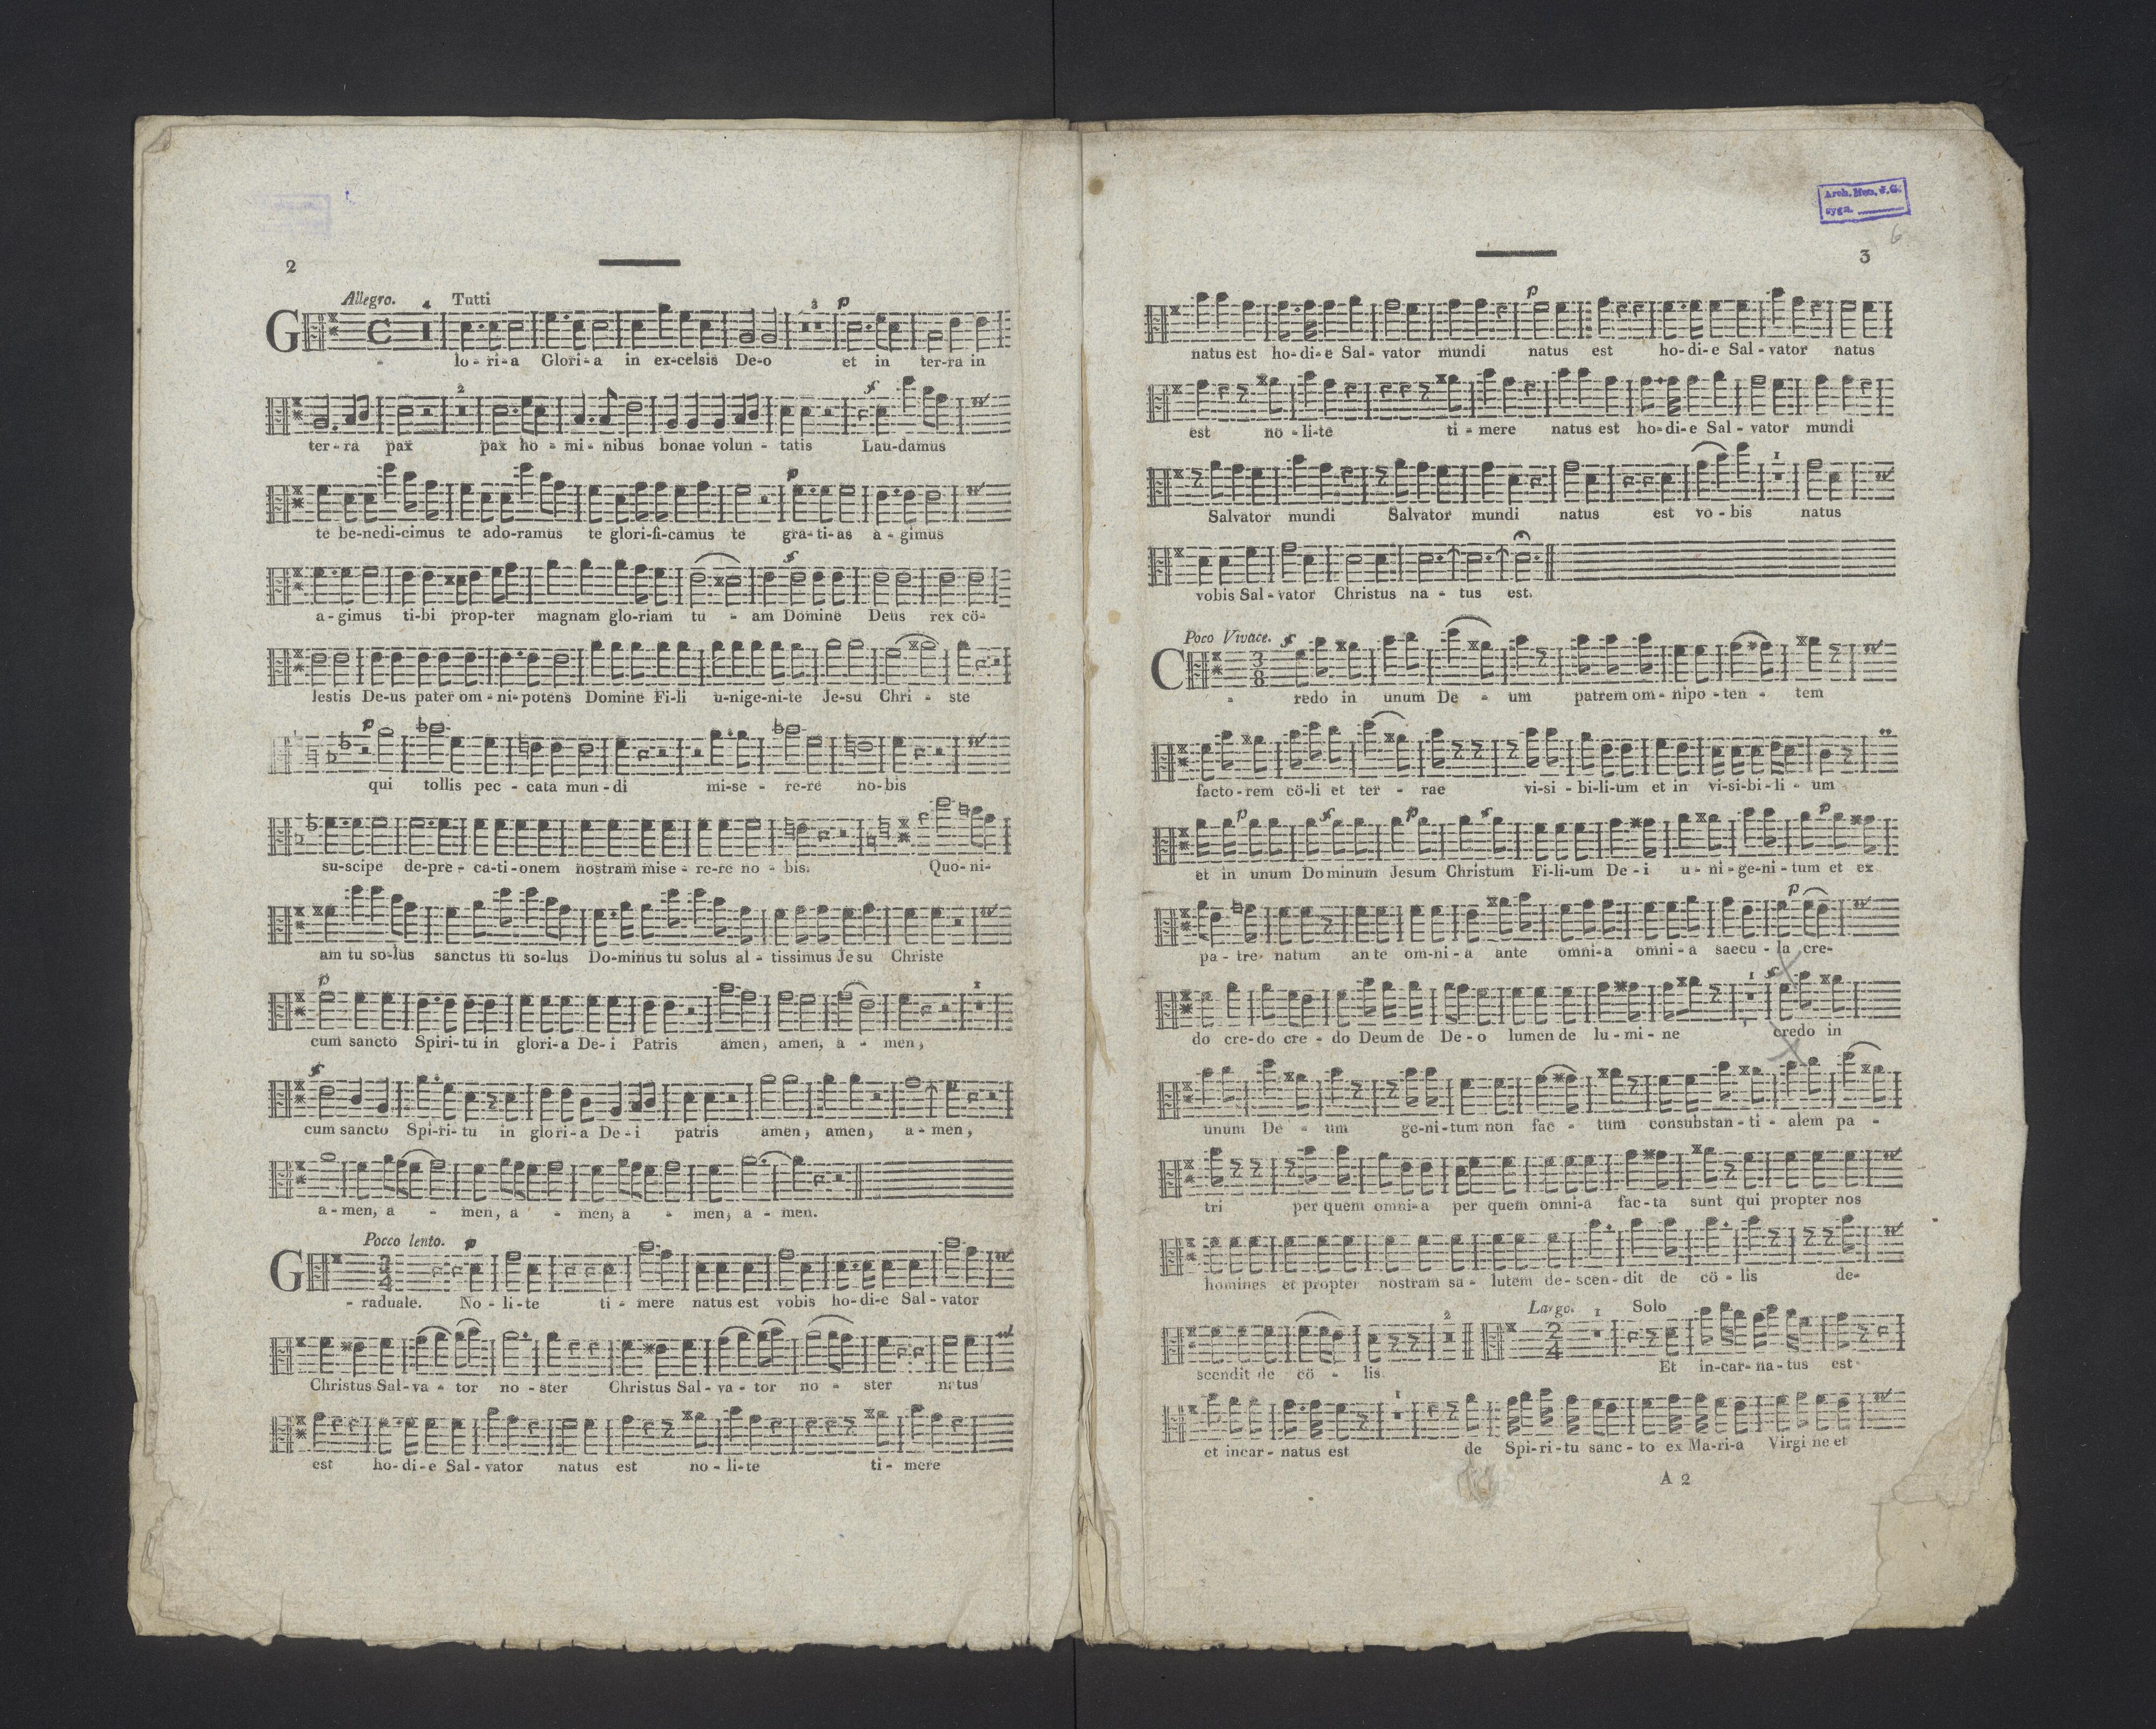 2
Allegro. 4 Tutti
G - lo-ri-a Glori-a in ex-celsis De-o 3 p et in ter-ra in
ter-ra pax 2 pax ho-mi-nibus bonae volun-tatis Lau-damus
te be-nedi-cimus te ado-ramus te glori-fi-camus te gra-ti-as a-gimus
a-gimus ti-bi prop-ter magnam glo-riam tu-am Domine Deus rex cö-
lestis De-us pater om-ni-potens Domine Fi-li u-nige-ni-te Je-su Chri-ste
qui tollis pec-cata mun-di mi-se-re-re no-bis
su-scipe de-pre-ca-ti-onem nostram mise-re-re no-bis. Quo-ni-
am tu so-lus sanctus tu so-lus Do-minus tu solus al-tissimus Jesu Christe
cum sancto Spiri-tu in glori-a De-i Patris amen, amen, a-men,
cum sancto Spi-ri-tu in glori-a De-i patris amen, amen, a-men,
a-men, a-men, a-men, a-men, a-men.
Pocco lento. p
G-raduale. No-li-te ti-mere natus est vobis ho-di-e Sal-vator
Christus Sal-va-tor no-ster Christus Sal-va-tor no-ster natus
est ho-di-e Sal-vator natus est no-li-te ti-mere
Arch. Muz. J.G.
sygn.
6
3
natus est ho-di-e Sal-vator mundi natus est ho-di-e Sal-vator natus
est no-li-te ti-mere natus est ho-di-e Sal-vator mundi
Salvator mundi Salvator mundi natus est vo-bis natus
vobis Sal-vator Christus na-tus est.
Poco Vivace.
C - redo in unum De-um patrem om-nipo-ten-tem
facto-rem cö-li et ter-rae vi-si-bi-li-um et in vi-si-bi-li-um
et in unum Dominum Jesum Christum Fi-li-um De-i u-ni-ge-ni-tum et ex
pa-tre natum ante om-ni-a ante omni-a omni-a saecu-la cre-
do cre-do cre-do Deum de De-o lumen de lu-mi-ne credo in
unum De-um ge-ni-tum non fac-tum consubstan-ti-alem pa-
tri per quem omni-a per quem omni-a fac-ta sunt qui propter nos
homines et propter nostram sa-lutem de-scen-dit de cö-lis de-
Largo. 1 Solo
scendit de cö-lis. Et in-car-na-tus est
et incar-natus est de Spi-ri-tu sanc-to ex Ma-ri-a Virgine et
A 2